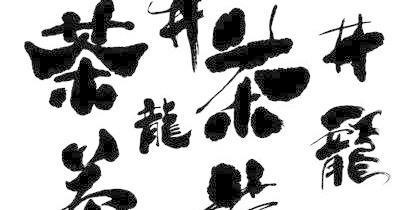 茶 井 茶 井
龍 龍
茶